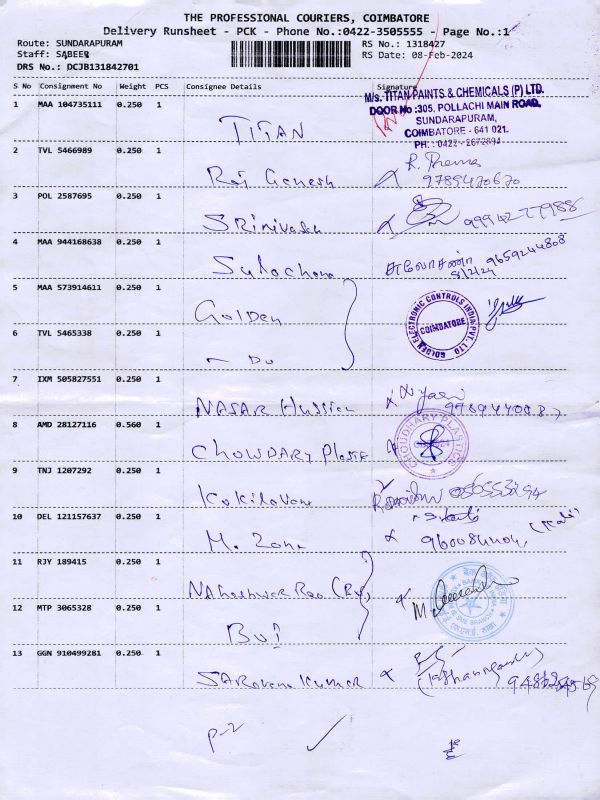 THE PROFESSIONAL COURIERS, COIMBATORE
Delivery Runsheet - PCK - Phone No.:0422-3505555 - Page No.:1
Route: SUNDARAPURAM
RS No.: 1318427
Staff: SABEER
RS Date: 08-Feb-2024
DRS No.: DCJB131842701
S No Consignment No Weight PCS Consignee Details Signature
M/s. TITAN PAINTS & CHEMICALS (P) LTD.
DOOR No :305, POLLACHI MAIN ROAD,
SUNDARAPURAM,
COIMBATORE - 641 021.
PH.: 0422-2672894
1 MAA 104735111 0.250 1 TITAN
2 TVL 5466989 0.250 1 Raj Ganesh R. Prema
9789420620
3 POL 2587695 0.250 1 Srinivasan
4 MAA 944168638 0.250 1 Sulochana சுலோசனா 9659244808
8/2/24
5 MAA 573914611 0.250 1 Golden
GOLDEN ELECTRONIC CONTROLS INDIA PVT. LTD
COIMBATORE
6 TVL 5465338 0.250 1 Do
7 IXM 505827551 0.250 1 NASAR Hussien
8 AMD 28127116 0.560 1 CHOWDARY Plastic
CHOUDHARY PLASTICS
9 TNJ 1207292 0.250 1 Kokilavani
10 DEL 121157637 0.250 1 M. Zone
11 RJY 189415 0.250 1 Maheshwar Rao
12 MTP 3065328 0.250 1
13 GGN 910499281 0.250 1 Saravana Kumar
P-2